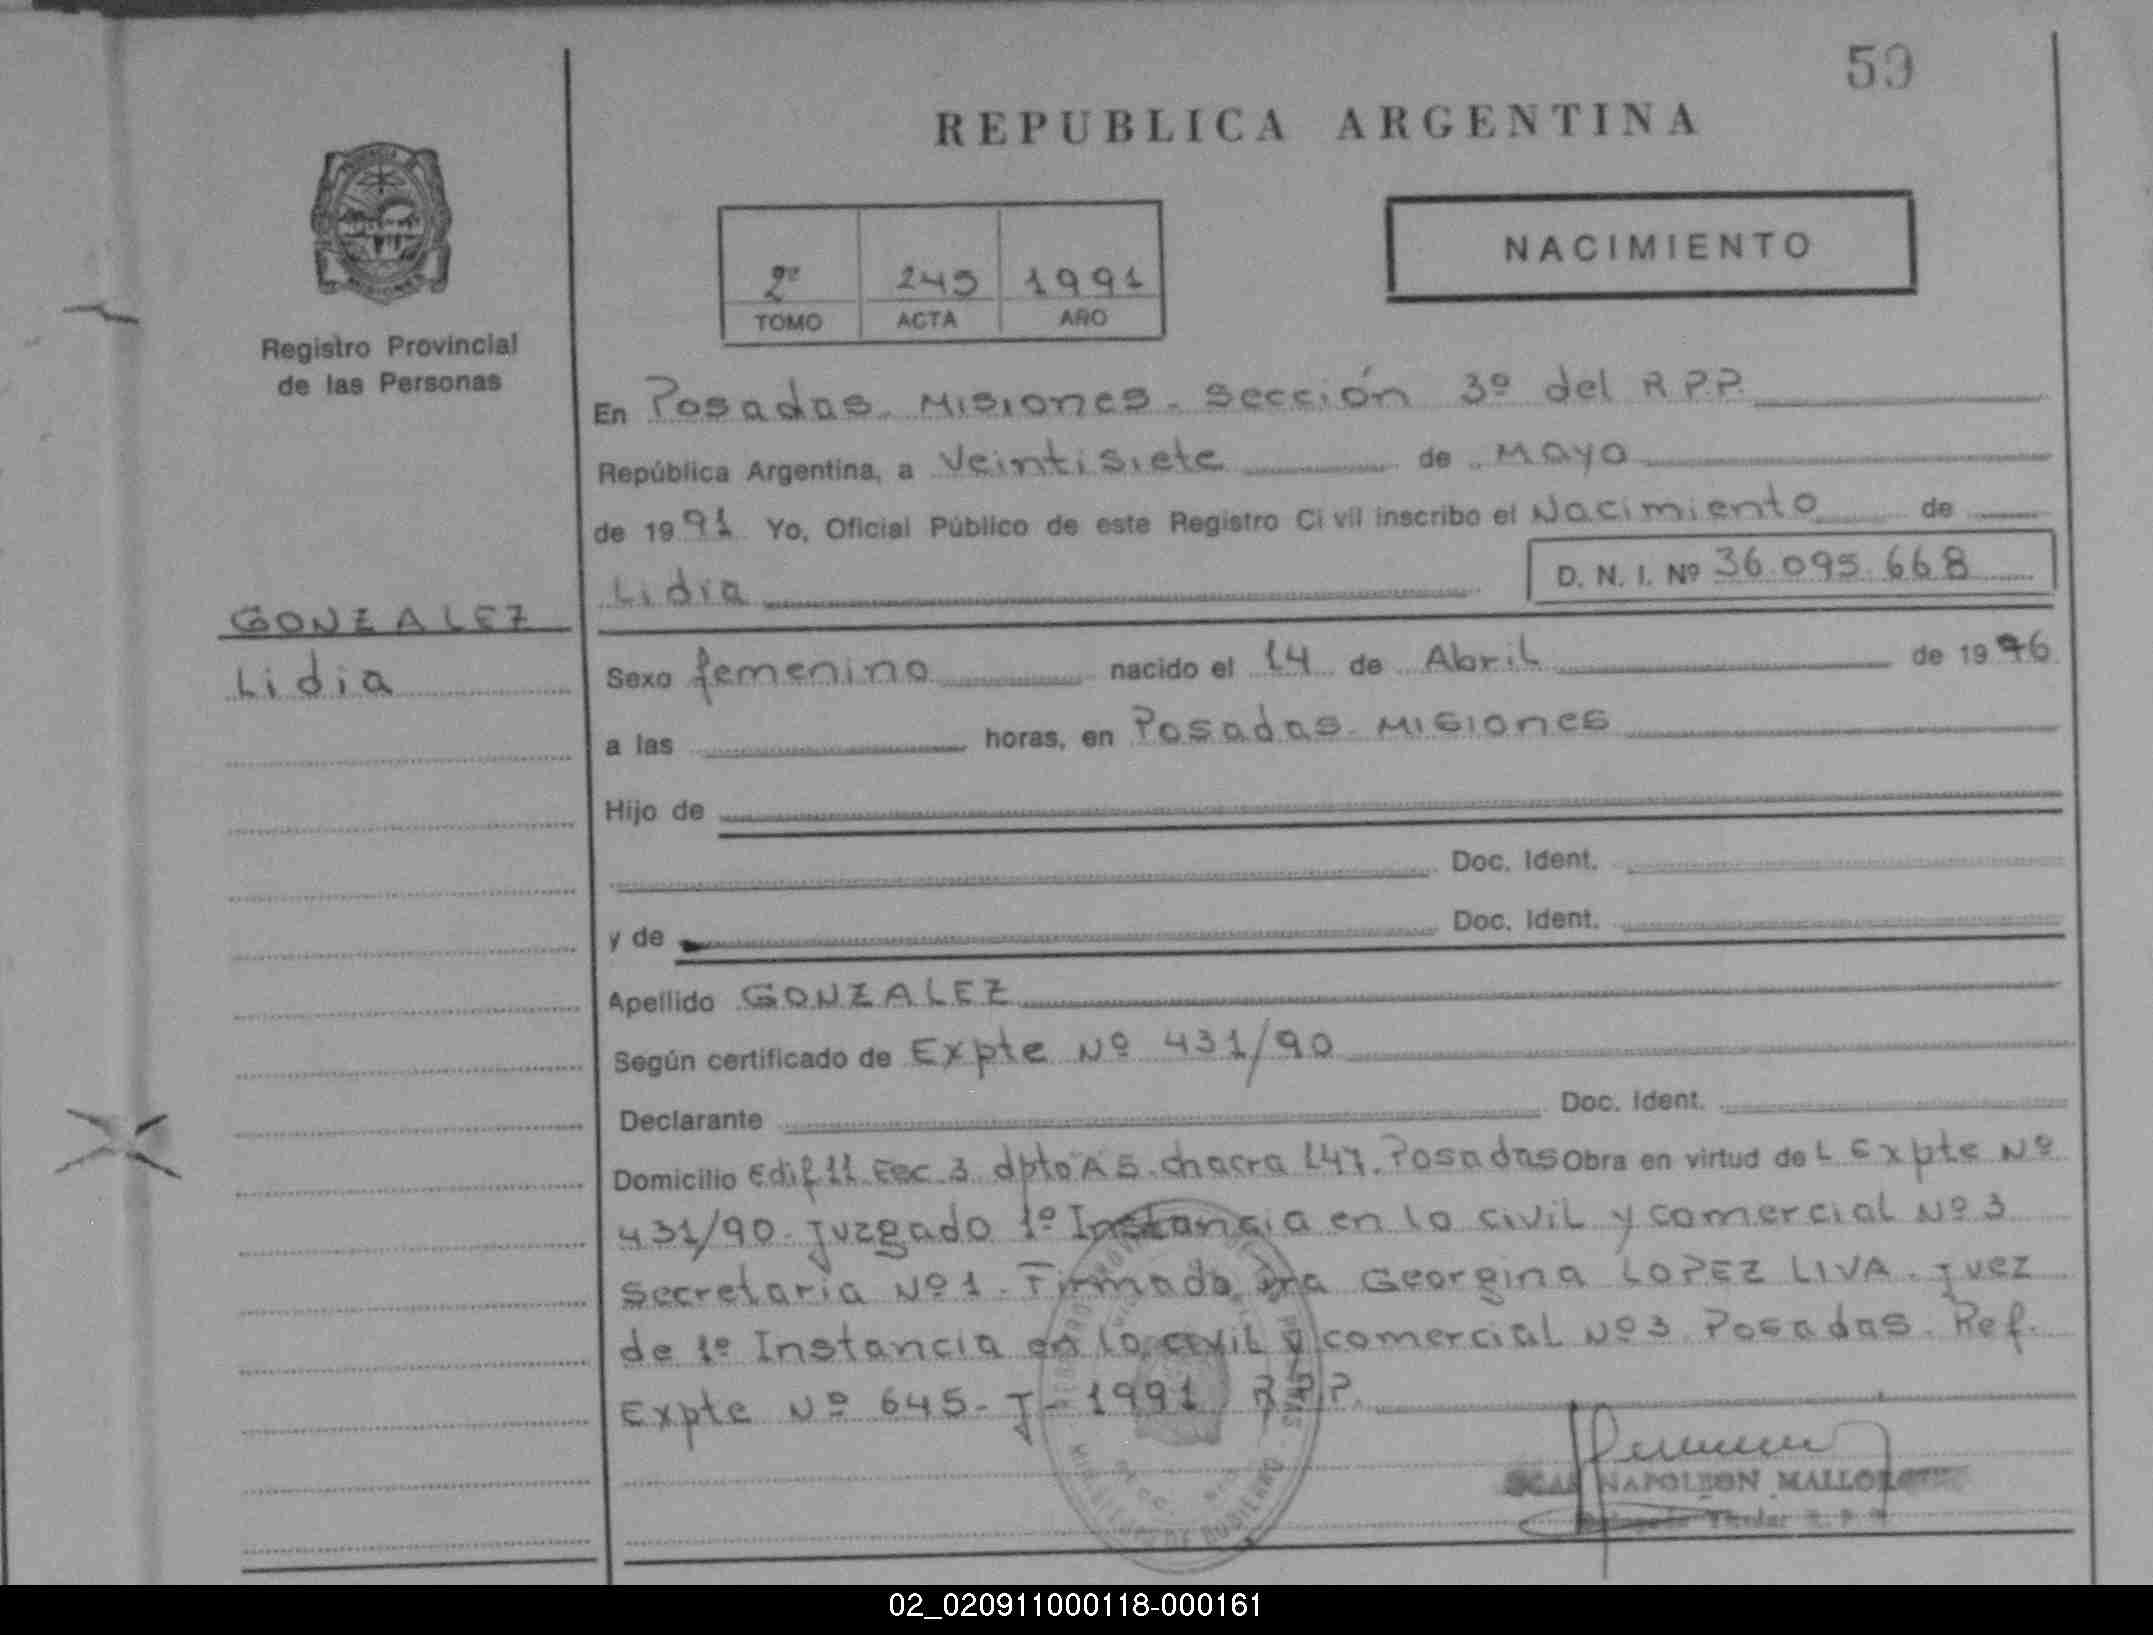 59
REPUBLICA ARGENTINA
2º 245 1991
TOMO ACTA AÑO
NACIMIENTO
Registro Provincial
de las Personas
En Posadas. Misiones. Sección 3º del R.P.P.
República Argentina, a Veintisiete de Mayo
de 1991 Yo, Oficial Público de este Registro Civil inscribo el Nacimiento de
Lidia D. N. I. Nº 36.095.668
GONZALEZ
Lidia
Sexo femenino nacido el 14 de Abril de 19
a las horas, en Posadas. Misiones
Hijo de
Doc. Ident.
y de Doc. Ident.
Apellido GONZALEZ
Según certificado de Expte Nº 431/90
Declarante Doc. Ident.
Domicilio Edif 11. Esc. 3 dpto A 5. chacra 147. Posadas Obra en virtud del Expte Nº
431/90. Juzgado 1º Instancia en lo civil y comercial Nº 3
Secretaria Nº 1. Firmado Dra Georgina LOPEZ LIVA. Juez
de 1º Instancia en lo civil y comercial Nº 3 Posadas. Ref.
Expte Nº 645-J-1991 R.P.P.
NAPOLEON
Titular R. P. P.
02_020911000118-000161